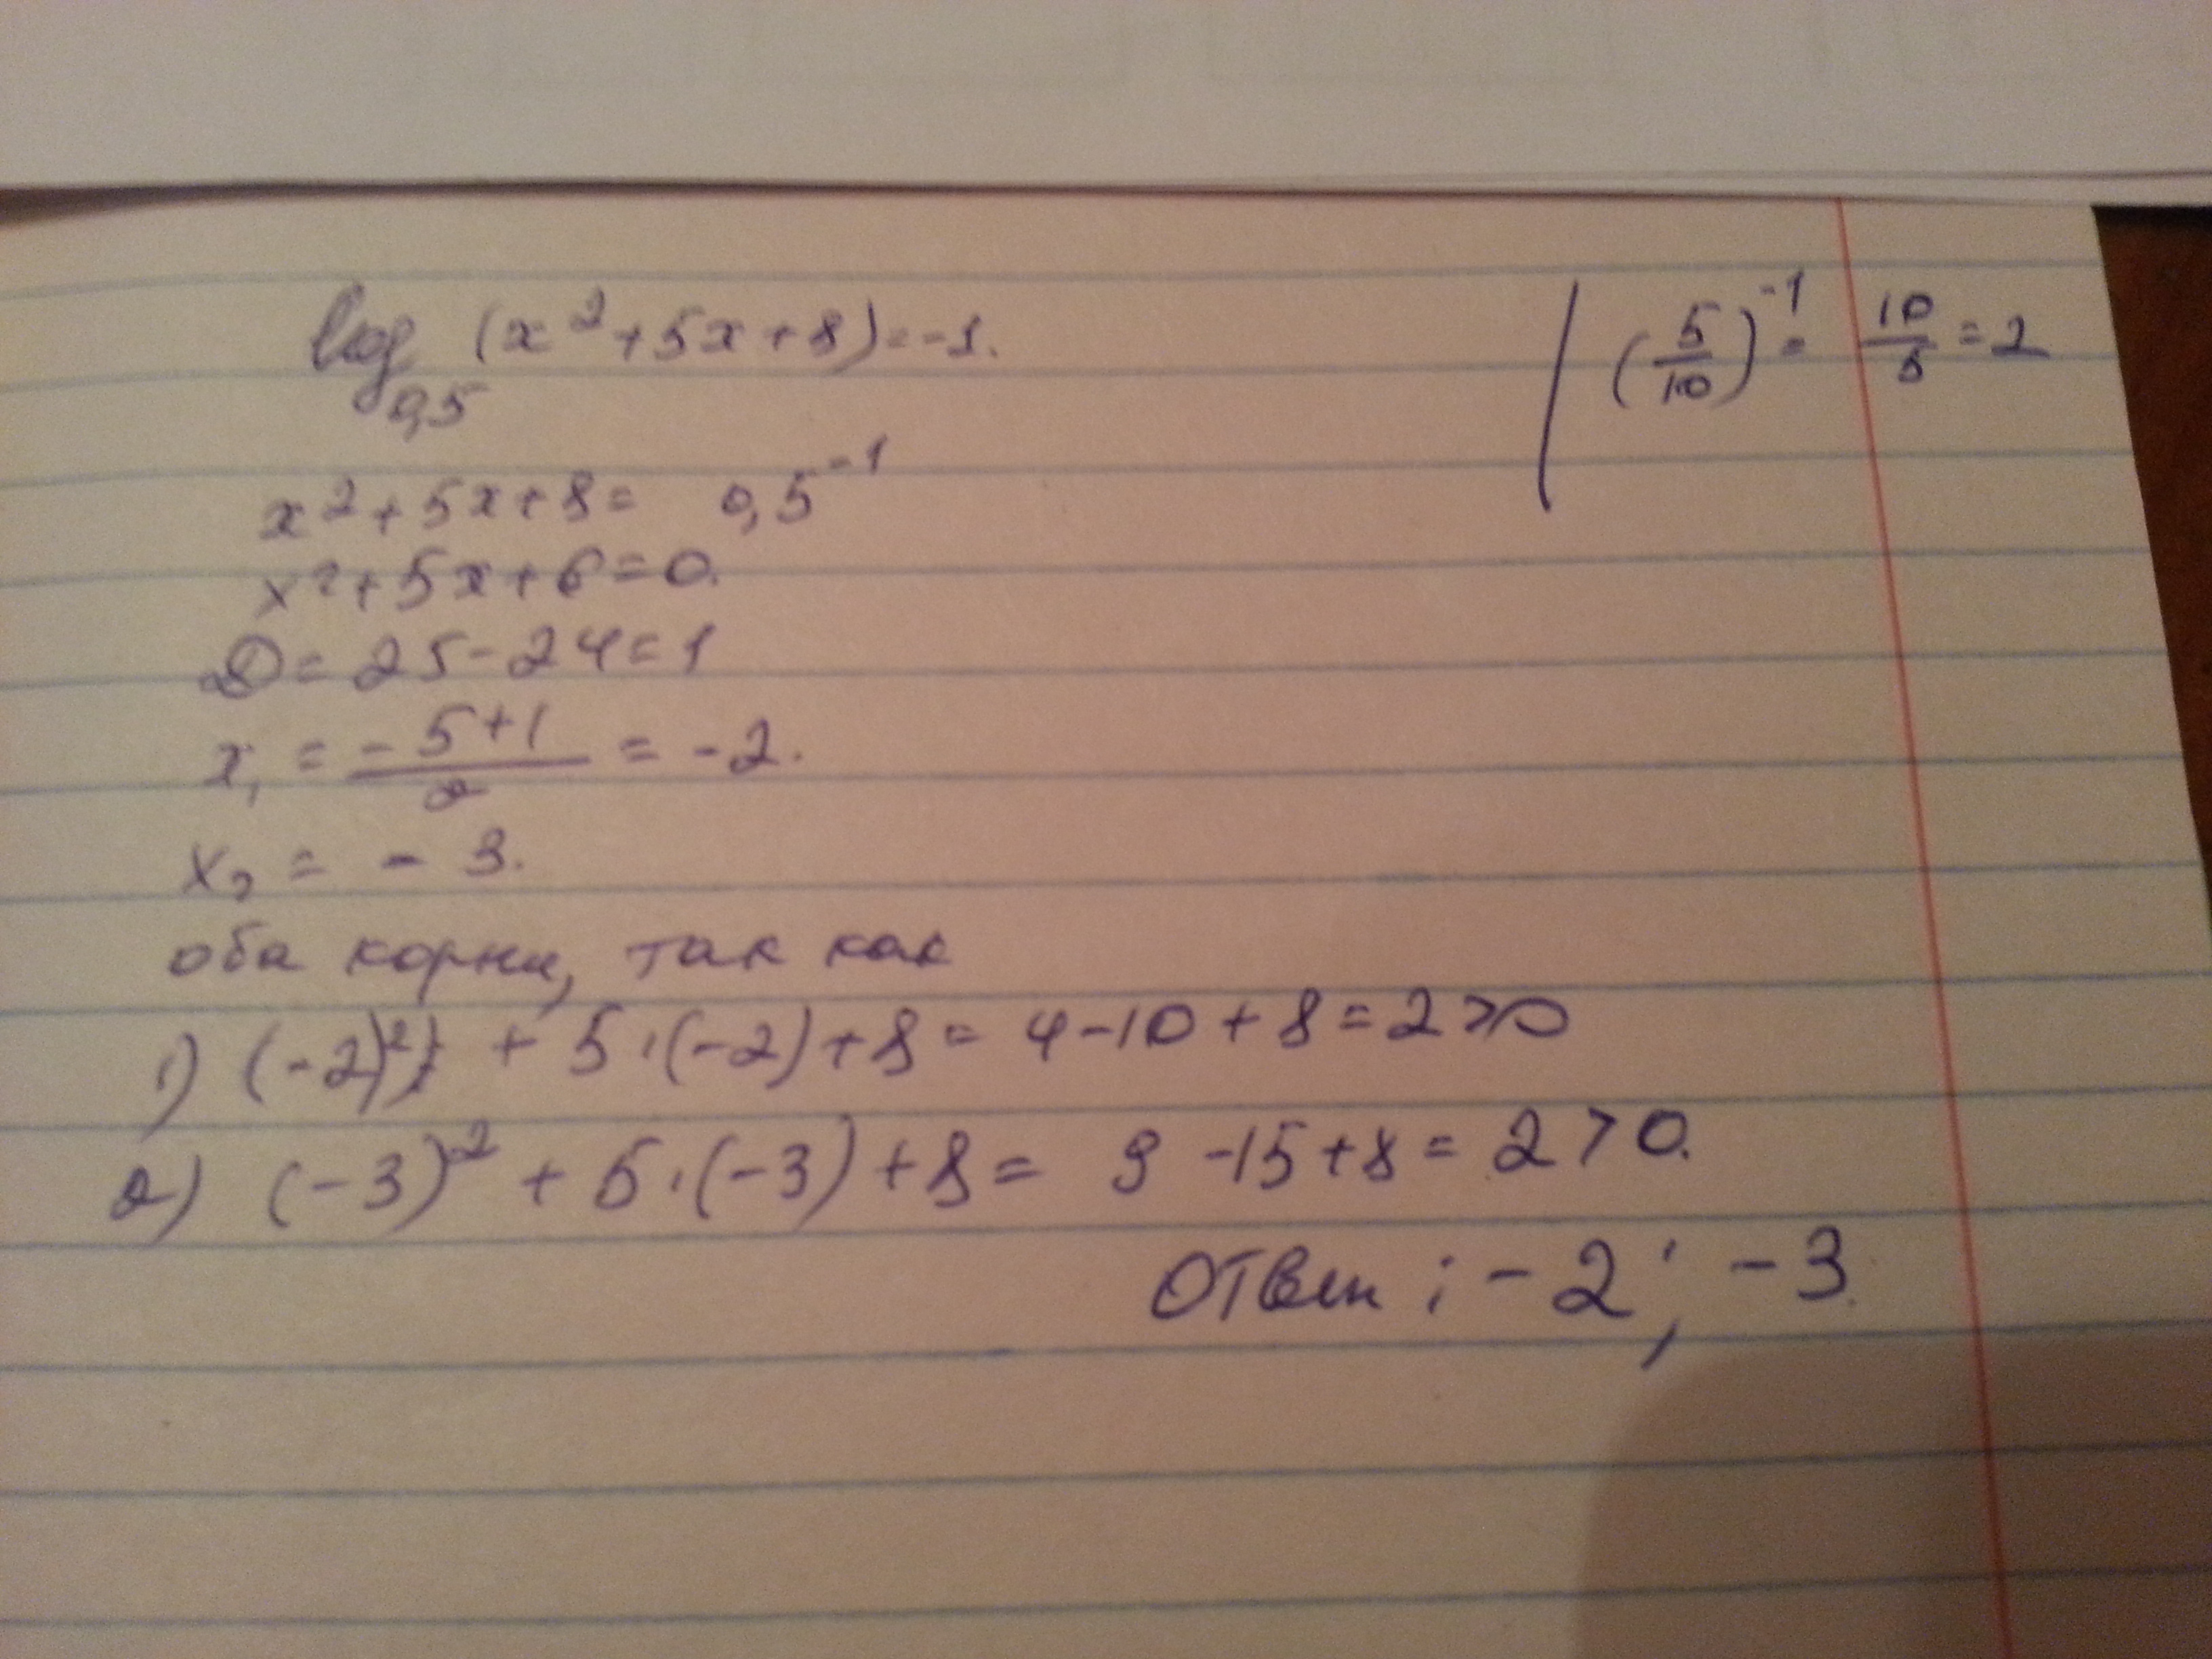 log₀,₅ (x² + 5x + 8) = -1.
(5/10)⁻¹ = 10/5 = 2
x² + 5x + 8 = 0,5⁻¹
x² + 5x + 6 = 0.
D = 25 - 24 = 1
x₁ = (-5+1)/2 = -2.
x₂ = - 3.
оба корни, так как
1) (-2)² + 5·(-2) + 8 = 4 - 10 + 8 = 2 > 0
2) (-3)² + 5·(-3) + 8 = 9 - 15 + 8 = 2 > 0.
Ответ: -2; -3.